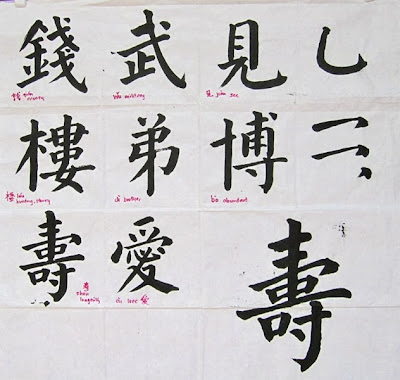 錢 武 見
钱 qián
money
wǔ military
见 jiàn see
樓 弟 博
楼 lóu
building, storey
dì brother
bó abundant
壽 愛 壽
寿
shòu
longevity
ài love 爱